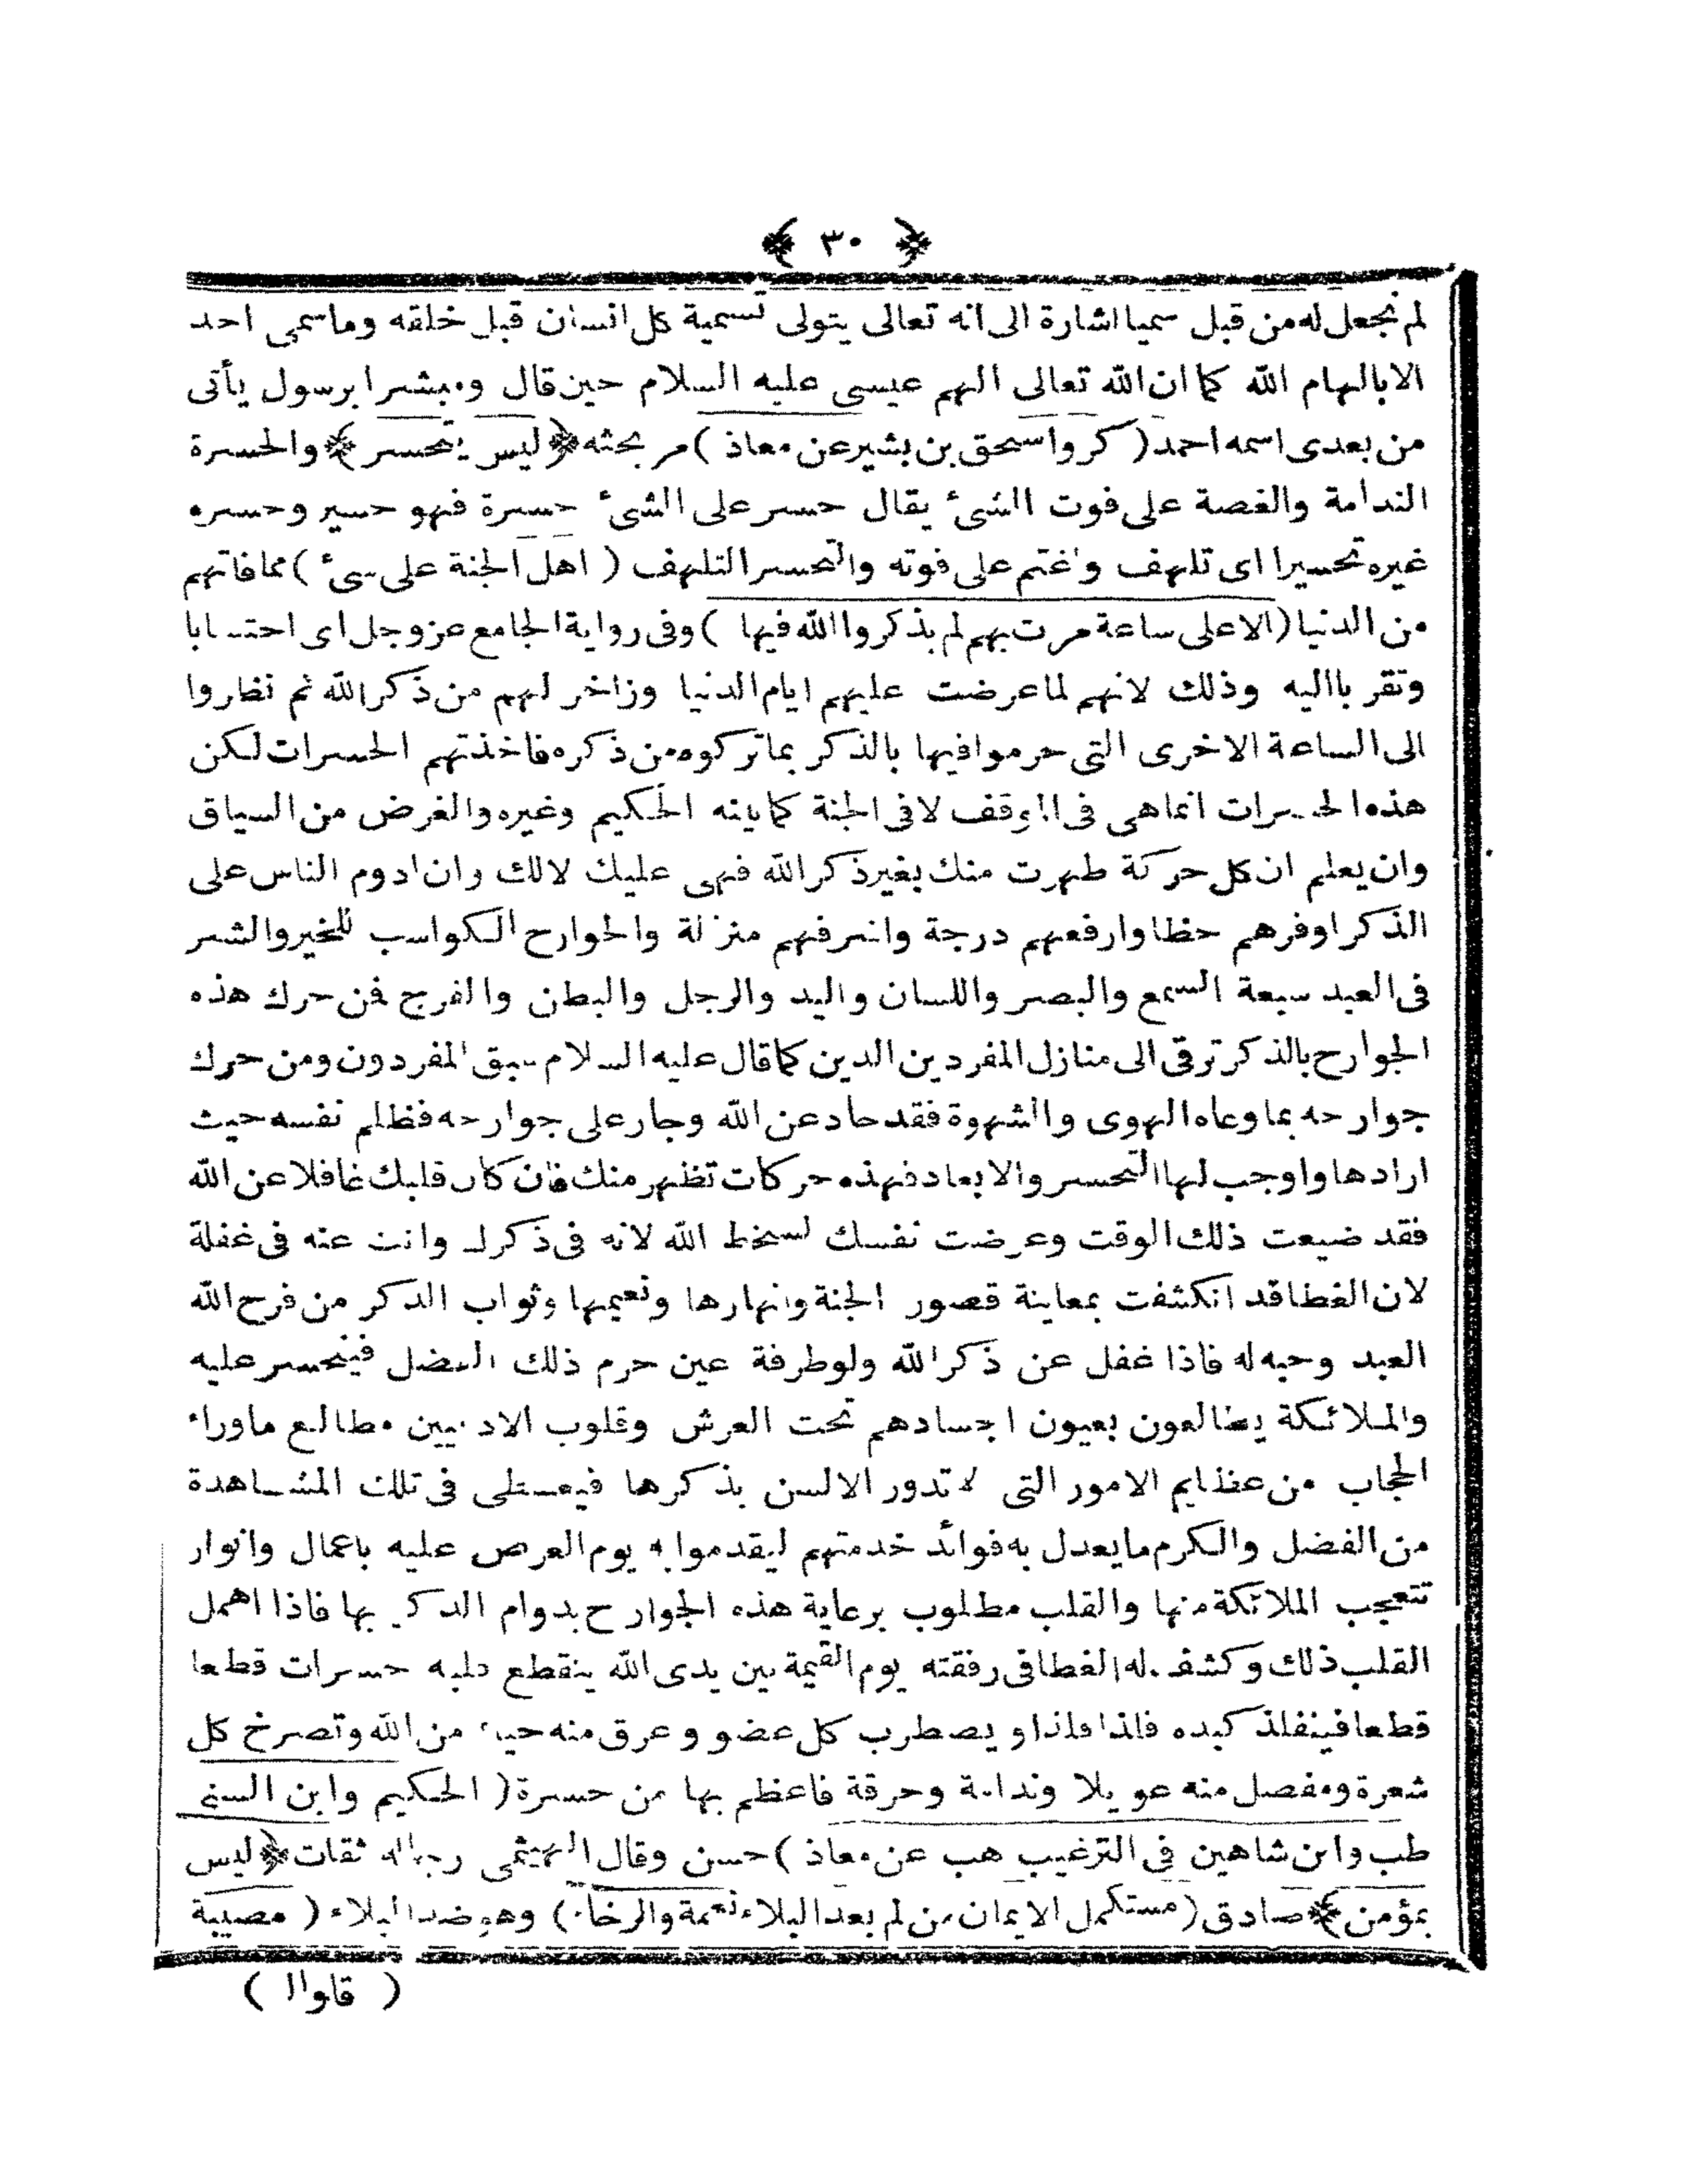 ﴿ ٣٠ ﴾
لم نجعل له من قبل سميا اشارة الى انه تعالى يتولى تسمية كل انسان قبل خلقه وما سمى احد
الا بالهام الله كما ان الله تعالى الهم عيسى عليه السلام حين قال ومبشرا برسول يأتى
من بعدى اسمه احمد ( كر واسحق بن بشير عن معاذ ) مر بحثه ﴿ ليس يتحسر ﴾ والحسرة
الندامة والغصة على فوت الشئ يقال حسر على الشئ حسرة فهو حسير وحسره
غيره تحسيرا اى تلهف واغتم على فوته والتحسر التلهف ( اهل الجنة على شئ ) مما فاتهم
من الدنيا ( الا على ساعة مرت بهم لم يذكروا الله فيها ) وفى رواية الجامع عز وجل اى احتسابا
وتقربا اليه وذلك لانهم لما عرضت عليهم ايام الدنيا وزاخر لهم من ذكر الله ثم نظروا
الى الساعة الاخرى التى حرموا فيها بالذكر بما تركوه من ذكره فاخذتهم الحسرات لكن
هذه الحسرات انما هى فى الموقف لا فى الجنة كما بينه الحكيم وغيره والغرض من السياق
وان يعلم ان كل حركة ظهرت منك بغير ذكر الله فهى عليك لا لك وان ادوم الناس على
الذكر اوفرهم حظا وارفعهم درجة واشرفهم منزلة والجوارح الكواسب للخير والشر
فى العبد سبعة السمع والبصر واللسان واليد والرجل والبطن والفرج فمن حرك هذه
الجوارح بالذكر ترقى الى منازل المفردين الذين كما قال عليه السلام سبق المفردون ومن حرك
جوارحه بما وعاه الهوى والشهوة فقد حاد عن الله وجار على جوارحه فظلم نفسه حيث
ارادها واوجب لها التحسر والابعاد فهذه حركات تظهر منك فان كان قلبك غافلا عن الله
فقد ضيعت ذلك الوقت وعرضت نفسك لسخط الله لانه فى ذكرك وانت عنه فى غفلة
لان الغطا قد انكشفت بمعاينة قصور الجنة وانهارها ونعيمها وثواب الذكر من فرح الله
العبد وحبه له فاذا غفل عن ذكر الله ولو طرفة عين حرم ذلك الفضل فيتحسر عليه
والملائكة يطالعون بعيون اجسادهم تحت العرش وقلوب الادميين مطالع ماوراء
الحجاب من عظايم الامور التى لا تدور الالسن بذكرها فيمتلى فى تلك المشاهدة
من الفضل والكرم ما يعدل به فوائد خدمتهم ليقدموا به يوم العرض عليه باعمال وانوار
تتعجب الملائكة منها والقلب مطلوب برعاية هذه الجوارح بدوام الذكر بها فاذا اهمل
القلب ذلك وكشف له الغطا فى رفقته يوم القيمة بين يدى الله ينقطع قلبه حسرات قطعا
قطعا فينفلذ كبده فلذا فلذا ويضطرب كل عضو وعرق منه حياء من الله وتصرخ كل
شعرة ومفصل منه عويلا وندامة وحرقة فاعظم بها من حسرة ( الحكيم وابن السنى
طب وابن شاهين فى الترغيب هب عن معاذ ) حسن وقال الهيثمى رجاله ثقات ﴿ ليس
بمؤمن ﴾ صادق ( مستكمل الايمان من لم يعد البلاء نعمة والرخاء ) وهو ضد البلاء ( مصيبة
( قالوا )